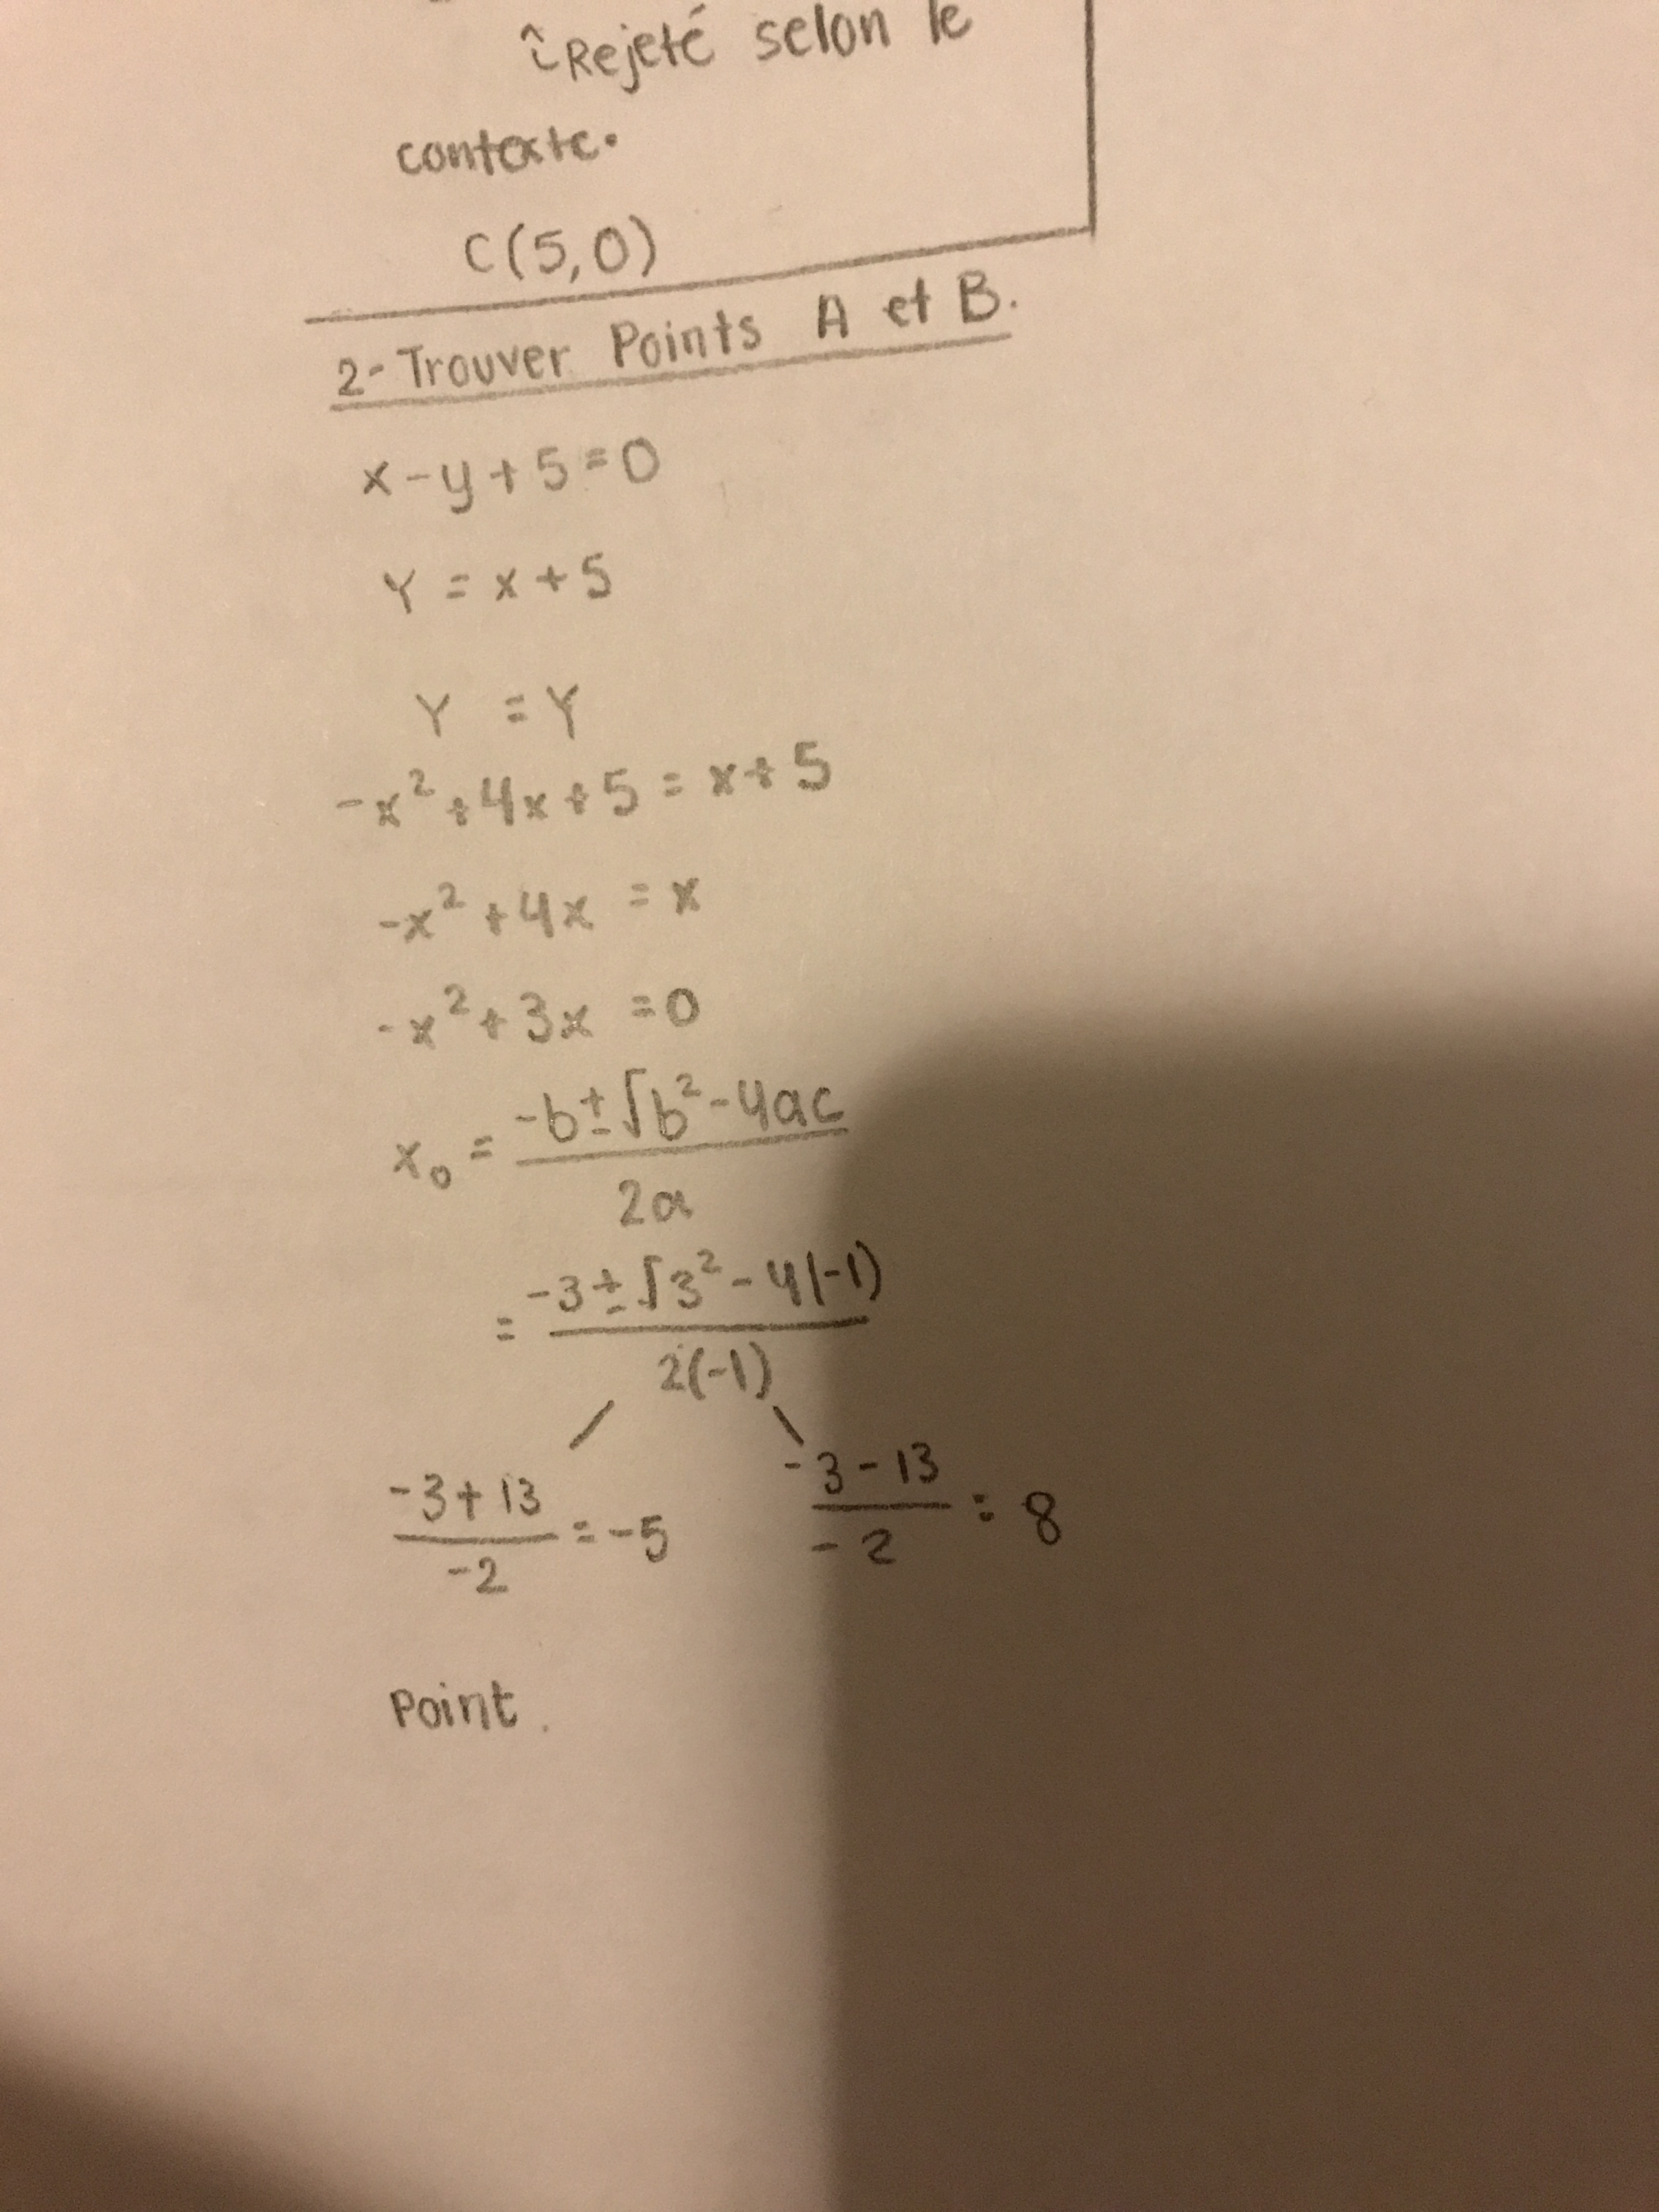 Rejeté selon le
contexte.
C(5,0)
2- Trouver Points A et B.
x-y+5=0
Y = x+5
Y = Y
-x²+4x+5 = x+5
-x²+4x = x
-x²+3x = 0
x₀ = (-b±√b²-4ac)/2a
= (-3±√3²-4(-1))/2(-1)
(-3+13)/-2 = -5 (-3-13)/-2 = 8
Point.